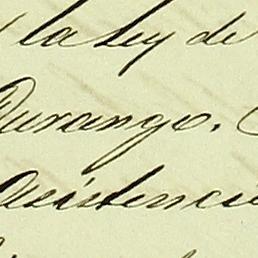 la Ley de
Durango.
asistenci